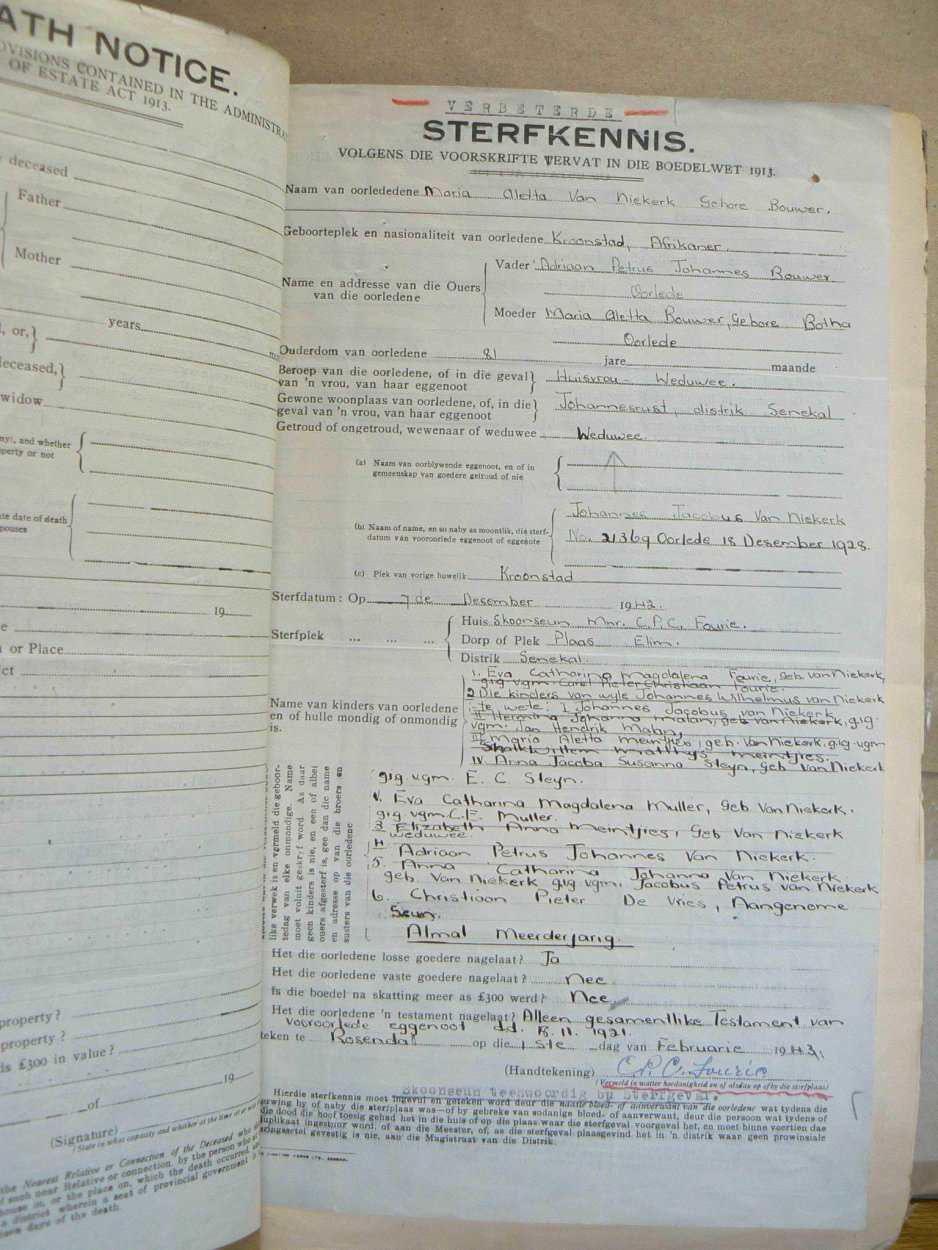 ATH NOTICE.
OVISIONS CONTAINED IN THE ADMINISTRA
OF ESTATE ACT 1913.
deceased
Father
Mother
years
, or,}
deceased,}
widow
ny), and whether
perty or not
te date of death
pouses
19
or Place
ct
property ?
property ?
ds £300 in value ?
19
of
(Signature)
(State in what capacity and whether at the time at
the Nearest Relative or Connection of the Deceased who
of such near Relative or connection, by the person who
house in, or the place on, which the death occurred,
a district wherein a seat of provincial government
days of the death.
VERBETERDE
STERFKENNIS.
VOLGENS DIE VOORSKRIFTE VERVAT IN DIE BOEDELWET 1913.
Naam van oorlededene Maria Aletta Van Niekerk Gebore Bouwer.
Geboorteplek en nasionaliteit van oorledene Kroonstad, Afrikaner.
Name en addresse van die Ouers
van die oorledene
Vader Adriaan Petrus Johannes Bouwer
Oorlede
Moeder Maria Aletta Bouwer, Gebore Botha
Oorlede
Ouderdom van oorledene 81 jare maande
Beroep van die oorledene, of in die geval
van 'n vrou, van haar eggenoot} Huisvrou - Weduwee.
Gewone woonplaas van oorledene, of, in die
geval van 'n vrou, van haar eggenoot} Johannesrust, distrik Senekal
Getroud of ongetroud, wewenaar of weduwee Weduwee.
(a) Naam van oorblywende eggenoot, en of in
gemeenskap van goedere getroud of nie
(b) Naam of name, en so naby as moontlik, die sterf-
datum van vooroorlede eggenoot of eggenote
Johannes Jacobus Van Niekerk
No. 21369 Oorlede 18 Desember 1928.
(c) Plek van vorige huwelik Kroonstad
Sterfdatum : Op 7de Desember 1942.
Sterfplek ... ... ...
Huis Skoonseun Mnr. C.P.C. Fourie.
Dorp of Plek Plaas Elim.
Distrik Senekal
Name van kinders van oorledene
en of hulle mondig of onmondig
is.
1. Eva Catharina Magdalena Fourie, geb. van Niekerk,
gig vgm. Carel Pieter Christiaan Fourie.
2 Die kinders van wyle Johannes Wilhelmus van Niekerk
te wete: I Johannes Jacobus van Niekerk
II Johanna Malan, geb van Niekerk, gig.
vgm. Jan Hendrik Malan,
III Maria Aletta Meintjies, geb. Van Niekerk. gig vgm
Schalk Willem Matthys Meintjies.
IV. Anna Jacoba Susanna Steyn, geb van Niekerk
gig vgm. E. C Steyn.
V. Eva Catharina Magdalena Muller, Geb Van Niekerk.
gig vgm. C.E. Muller.
3. Elizabeth Anna Meintjies, Geb Van Niekerk
weduwee.
4. Adriaan Petrus Johannes Van Niekerk.
5. Anna Catharina Johanna Van Niekerk
geb. Van Niekerk gig vgm. Jacobus Petrus van Niekerk
6. Christiaan Pieter De Vries, Aangenome
Seun.
Almal Meerderjarig.
like verwek is en vermeld die geboor-
tedag van elke onmondige. Name
moet voluit geskryf word. As daar
geen kinders is nie, en een of albei
ouers afgesterf is, gee dan die name
en adresse op van die broers en
susters van die oorledene
Het die oorledene losse goedere nagelaat? Ja
Het die oorledene vaste goedere nagelaat? Nee
Is die boedel na skatting meer as £300 werd? Nee
Het die oorledene 'n testament nagelaat? Alleen gesamentlike Testament van
vooroorlede eggenoot d.d. 11. 1921.
teken te Rosendal op die 1ste dag van Februarie 1943,
(Handtekening) C.P.C. Fourie
(Vermeld in watter hoedanigheid en of aldan op of by die sterfplaas)
Skoonseun teenwoordig by Sterfgeval.
Hierdie sterfkennis moet ingevul en geteken word deur die naaste bloed- of aanverwant van die oorledene wat tydens die
erwing by of naby die sterfplaas was—of by gebreke van sodanige bloed- of aanverwant, deur die persoon wat tydens of
die dood die hoof toesig gehad het in die huis of op die plaas waar die sterfgeval voorgeval het, en moet binne veertien dae
duplikaat ingestuur word, of aan die Meester, of, as die sterfgeval plaasgevind het in 'n distrik waar geen prowinsiale
gevestig is nie, aan die Magistraat van die Distrik.